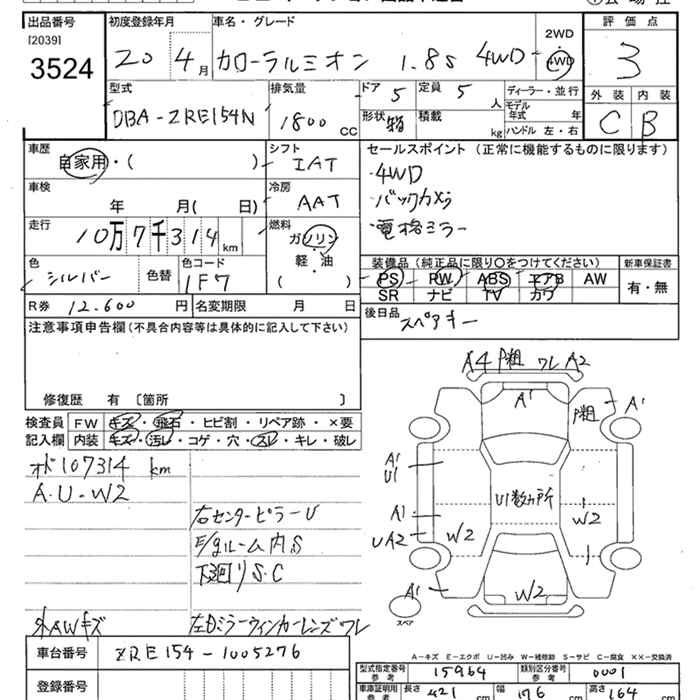 出品番号 初度登録年月 車名・グレード 2WD 評価点
[2039] 3524 20 4月 カローラルミオン 1.8S 4WD 4WD 3
型式 排気量 ドア 5 定員 5人 ディーラー・並行 外装 内装
DBA-ZRE154N 1800 CC 形状 箱 積載 kg モデル年式 年 C B
ハンドル 左・右
車歴 シフト セールスポイント (正常に機能するものに限ります)
自家用・( ) IAT ・4WD
車検 冷房 ・バックカメラ
年 月( 日) AAT ・電格ミラー
走行 燃料
10万7千314km ガソリン・軽・油
( )
色 色替 色コード 装備品 (純正品に限り○をつけてください) 新車保証書
シルバー 1F7 PS PW ABS エアB AW 有・無
SR ナビ TV カワ
R券 12.600円 名変期限 月 日 後日品 スペアキー
注意事項申告欄(不具合内容等は具体的に記入して下さい)
修復歴 有 〔箇所 〕
検査員 FW キズ・飛石・ヒビ割・リペア跡・×要
記入欄 内装 キズ・汚レ・コゲ・穴・スレ・キレ・破レ
オド107314 km
A.U-W2
右センターピラーU
E/gルーム内S
下廻りS.C
外AWキズ 左Dミラーウィンカーレンズワレ
A4 P粗 ワレ A2
A1 P粗 A1
A1
U1
U1数ヵ所
A1 W2 W2
UA2
A1 W2
スペア
A-キズ E-エクボ U-凹み W-補修跡 S-サビ C-腐食 ××-交換済
車台番号 ZRE154-1005276
型式指定番号 参考 15964 類別区分番号 参考 0001
登録番号 車庫証明用 参考 長さ 421 cm 幅 176 cm 高さ 164 cm